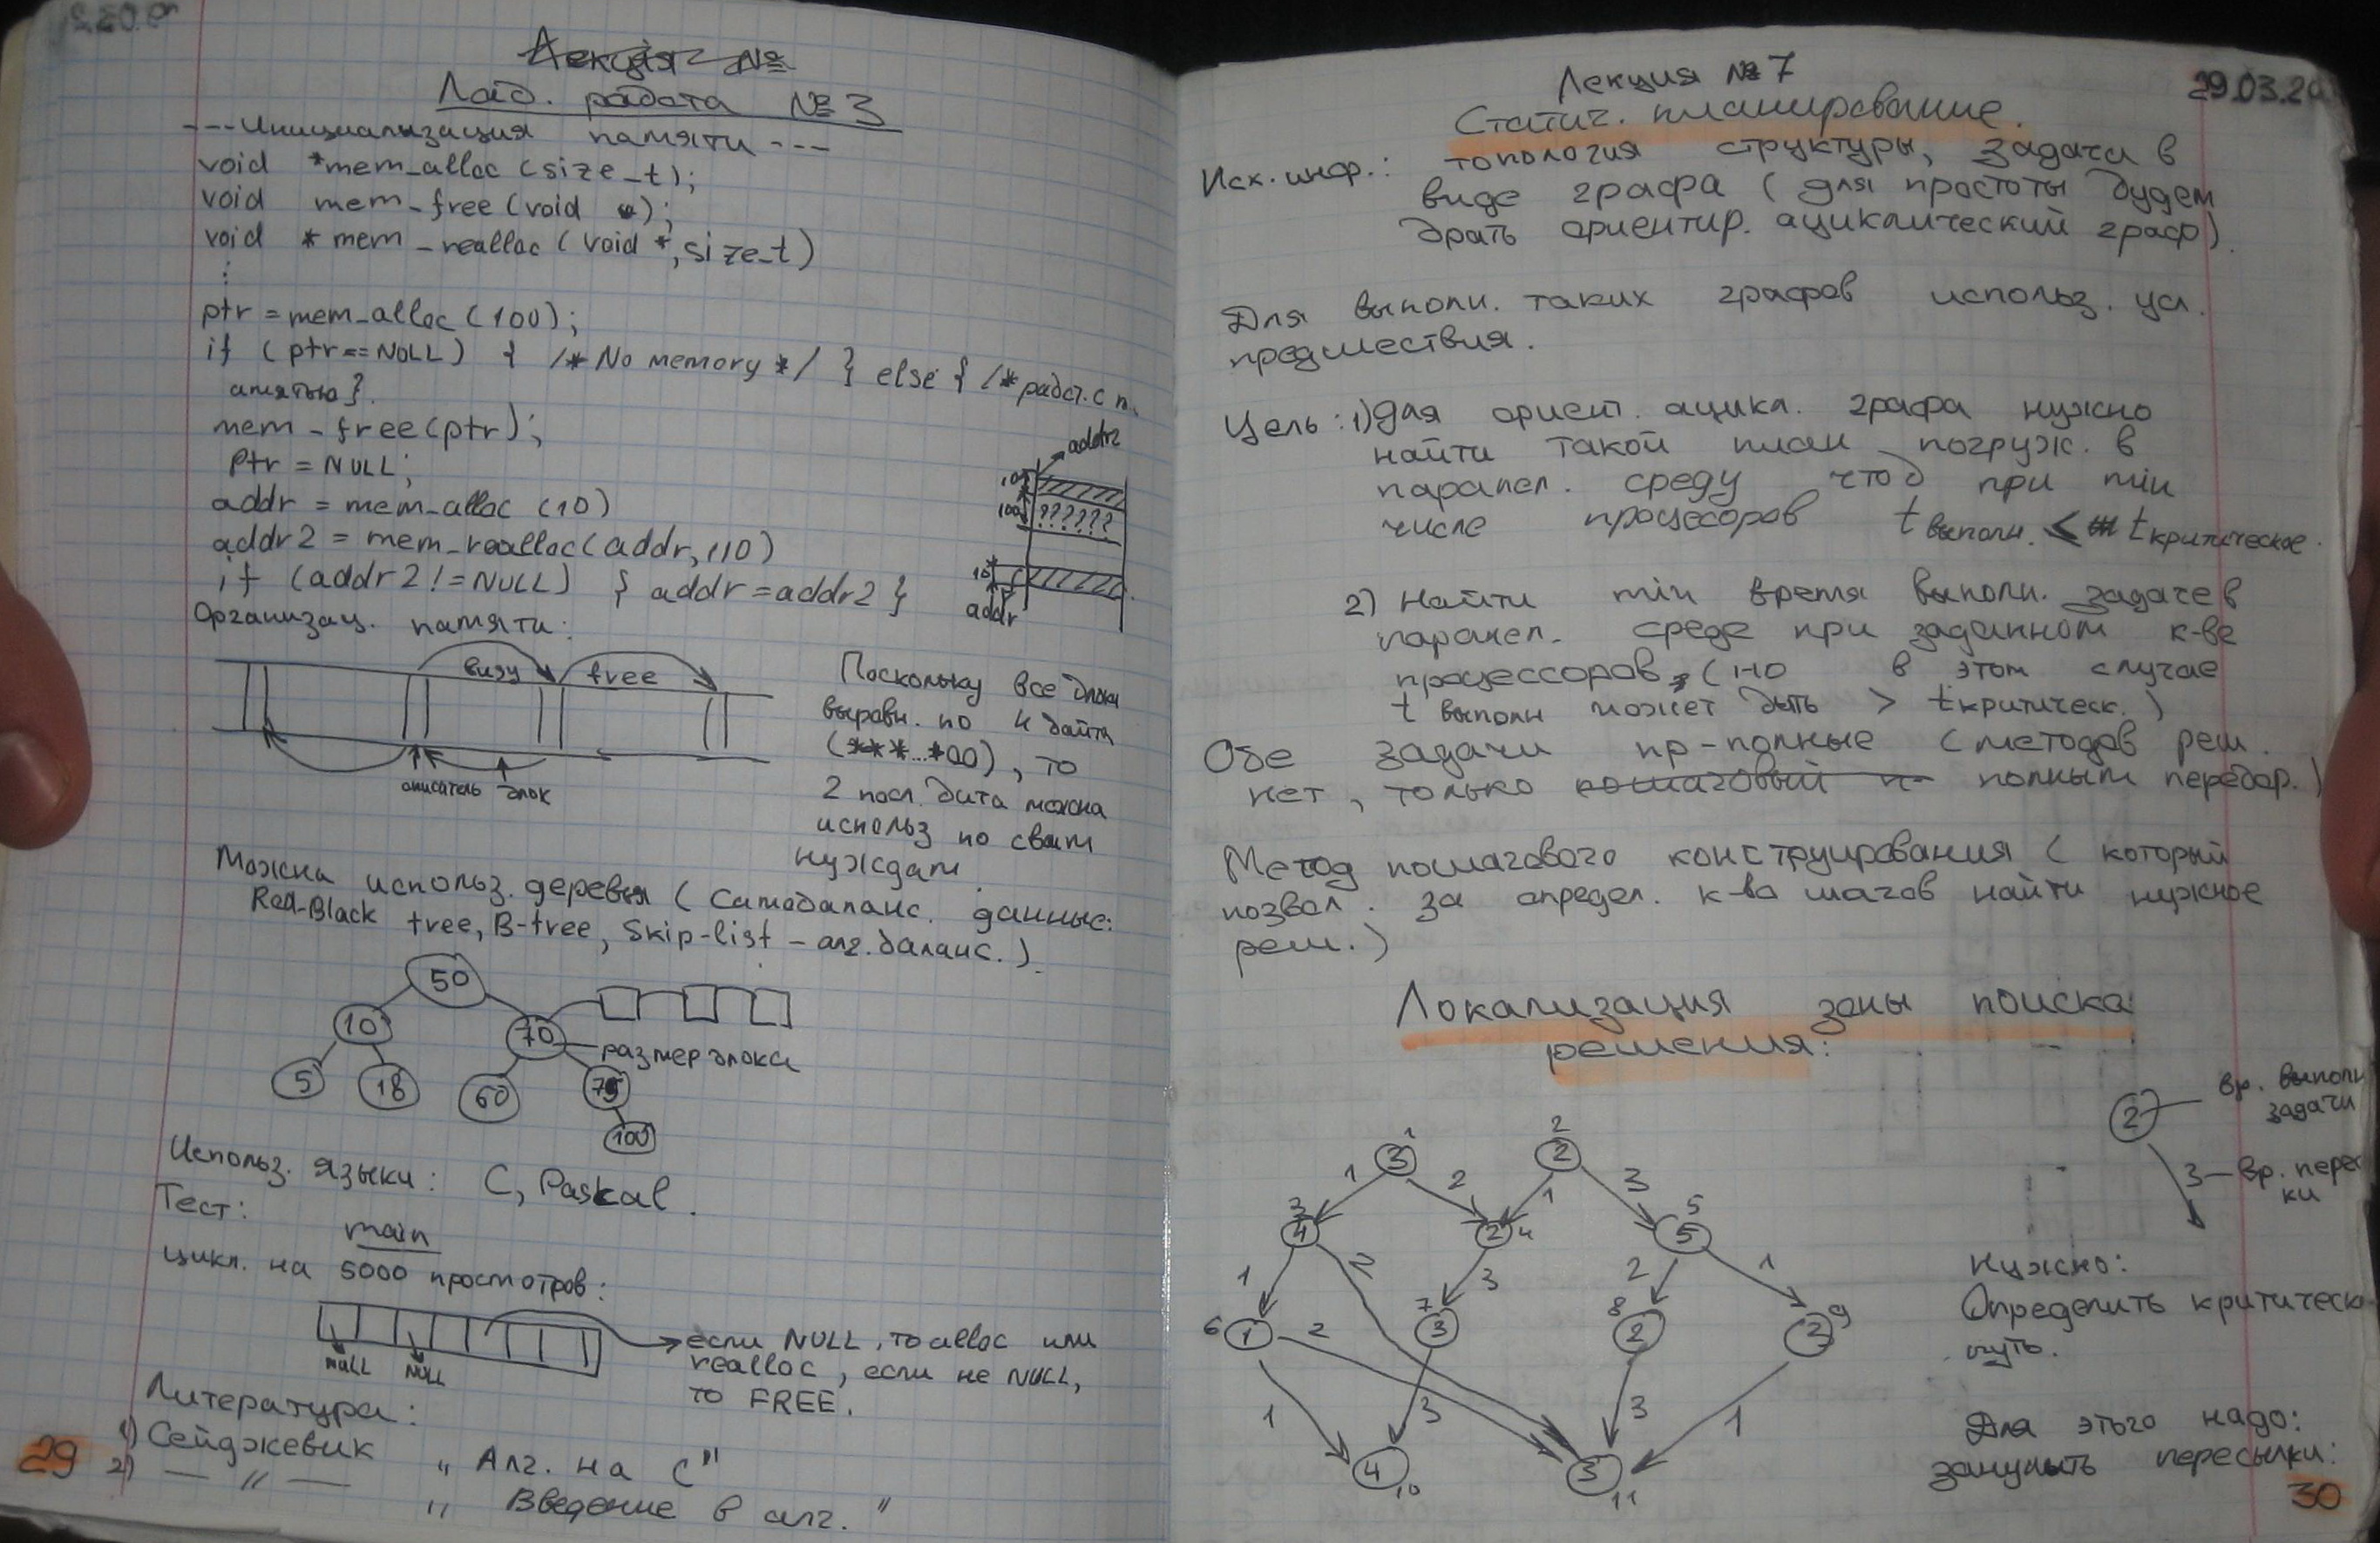 Лекція №
Лаб. работа №3
---Инициализация памяти---
void *mem_alloc (size_t);
void mem_free (void *);
void *mem_realloc (void *, size_t)
⋮
ptr = mem_alloc (100);
if (ptr == NULL) { /* No memory */ } else { /* работ. с п.
амятью }.
mem_free(ptr);
ptr = NULL;
addr = mem_alloc (10)
addr2 = mem_realloc(addr, 110)
if (addr2 != NULL) { addr = addr2 }
addr2
10
100 ??????
10
addr
Организац. памяти:
busy free
описатель блок
Поскольку все блоки
выравн. по 4 байта
(***...*00), то
2 посл. бита можна
использ по свому
нуждам.
Можна использ. деревья (Самобаланс. данные:
Red-Black tree, B-tree, Skip-list – алг. баланс.).
50
10 70
размер блока
5 18 60 75
100
Использ. языки: C, Paskal.
Тест:
main
цикл. на 5000 просмотров:
NULL NULL
если NULL, то alloc или
realloc, если не NULL,
то FREE.
Литература:
1) Сейджевик „Алг. на C"
2) — // — „Введение в алг."
29
Лекция №7
29.03.20
Статич. планирование.
Исх. инф.: топология структуры, задача в
виде графа (для простоты будем
брать ориентир. ациклический граф).
Для выполн. таких графов использ. усл.
предшествия.
Цель: 1) Для ориент. ацикл. графа нужно
найти такой план погруж. в
паралел. среду чтоб при min
числе процесоров t выполн. < t критическое.
2) Найти min время выполн. задаче в
паралел. среде при заданном к-ве
процессоров, (но в этом случае
t выполн может быть > t критическ.)
Обе задачи np-полные (методов реш.
нет, только пошаговый п полным перебор.)
Метод пошагового конструирования (который
позвол. за определ. к-во шагов найти нужное
реш.)
Локализация зоны поиска
решения:
1 2
3 2
1 2 1 3
3 5
4 2 4 5
1 2 3 2 1
6 7 8 9
1 3 2 2
2
1 3 3 1
4 5
10 11
2 вр. выполн
задачи
3 – вр. перес
ки
Нужно:
Определить критическ
путь.
Для этого надо:
занулить пересылки:
30